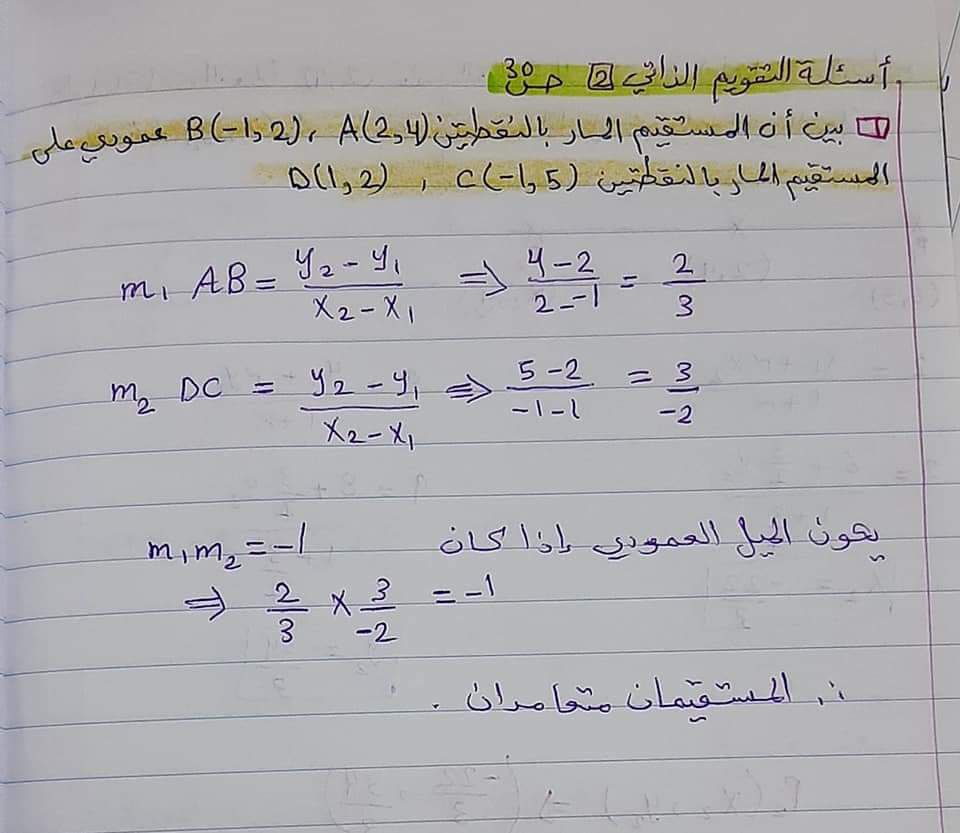 أسئلة التقويم الذاتي 2 ص30
1 بين أن المستقيم المار بالنقطتين A(2,4) ، B(-1,2) عمودي على
المستقيم المار بالنقطتين C(-1,5) ، D(1,2)
m₁ AB = y₂-y₁ / x₂-x₁ ⇒ 4-2 / 2--1 = 2/3
m₂ DC = y₂-y₁ / x₂-x₁ ⇒ 5-2 / -1-1 = 3/-2
يكون الميل العمودي إذا كان m₁m₂ = -1
⇒ 2/3 × 3/-2 = -1
∴ المستقيمان متعامدان .